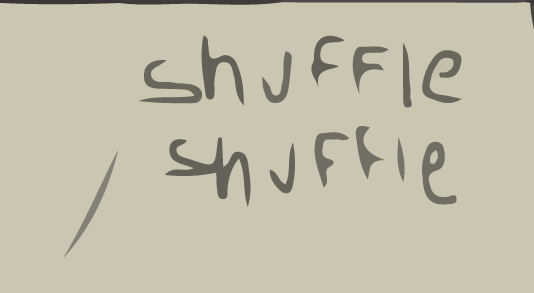 shuffle
shuffle